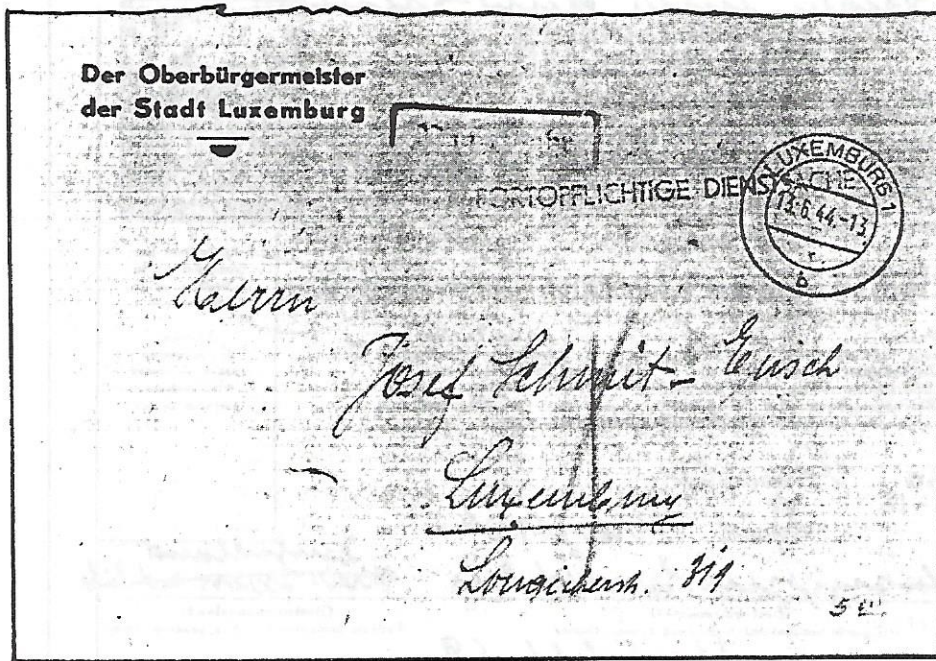 Der Oberbürgermeister
der Stadt Luxemburg
PORTOPFLICHTIGE DIENSTSACHE
LUXEMBURG 1
13.6.44.-13
b
Herrn
Josef Schmit-
Luxemburg
319